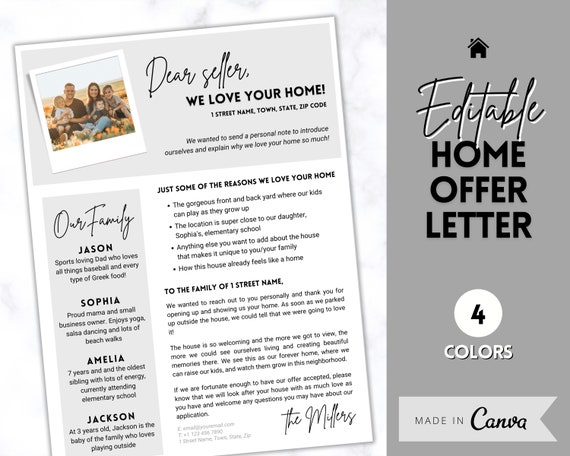 Dear seller,
WE LOVE YOUR HOME!
1 STREET NAME, TOWN, STATE, ZIP CODE
We wanted to send a personal note to introduce
ourselves and explain why we love your home so much!
Our Family
JASON
Sports loving Dad who loves
all things baseball and every
type of Greek food!
SOPHIA
Proud mama and small
business owner. Enjoys yoga,
salsa dancing and lots of
beach walks
AMELIA
7 years and and the oldest
sibling with lots of energy,
currently attending
elementary school
JACKSON
At 3 years old, Jackson is the
baby of the family who loves
playing outside
JUST SOME OF THE REASONS WE LOVE YOUR HOME
• The gorgeous front and back yard where our kids
can play as they grow up
• The location is super close to our daughter,
Sophia's, elementary school
• Anything else you want to add about the house
that makes it unique to you/your family
• How this house already feels like a home
TO THE FAMILY OF 1 STREET NAME,
We wanted to reach out to you personally and thank you for
opening up and showing us your home. As soon as we parked
up outside the house, we could tell that we were going to love
it!
The house is so welcoming and the more we got to view, the
more we could see ourselves living and creating beautiful
memories there. We see this as our forever home, where we
can raise our kids, and watch them grow in this neighborhood.
If we are fortunate enough to have our offer accepted, please
know that we will look after your house with as much love as
you have and welcome any questions you may have about our
application.
the Millers
E: email@youremail.com
T: +1 123 456 7890
1 Street Name, Town, State, Zip
Editable
HOME
OFFER
LETTER
4
COLORS
MADE IN Canva